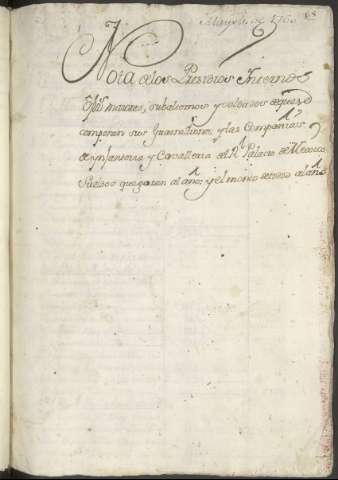 Nota de los Presidios Internos
ofiz.s maiores, subalternos y soldados de que se
componen sus Guarniziones, y las Compañias
de ynfanteria y Cavalleria del R.l Palacio de Mexico
Sueldos que gozan al año, y el monto de todo al año